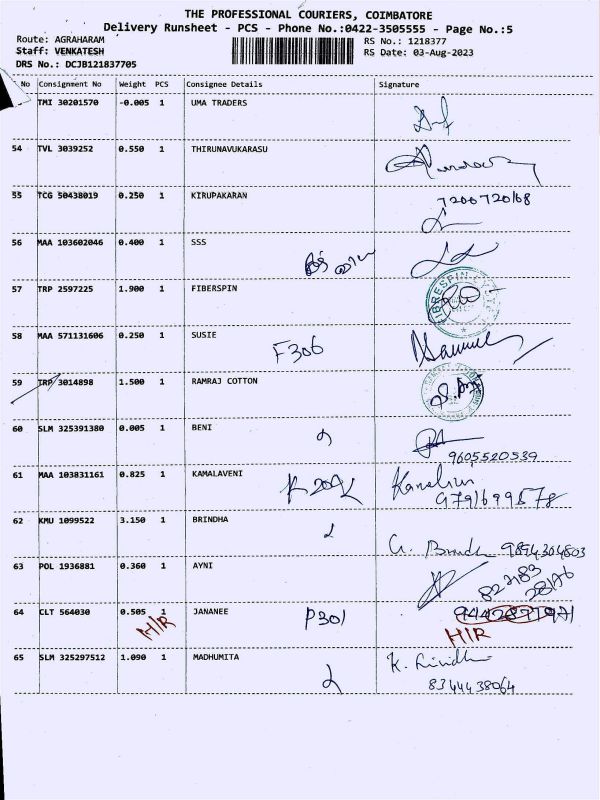 THE PROFESSIONAL COURIERS, COIMBATORE
Delivery Runsheet - PCS - Phone No.:0422-3505555 - Page No.:5
Route: AGRAHARAM
RS No.: 1218377
Staff: VENKATESH
RS Date: 03-Aug-2023
DRS No.: DCJB121837705
No Consignment No Weight PCS Consignee Details Signature
TMI 30201570 -0.005 1 UMA TRADERS
54 TVL 3039252 0.550 1 THIRUNAVUKARASU
55 TCG 50438019 0.250 1 KIRUPAKARAN
7200720168
56 MAA 103602046 0.400 1 SSS
57 TRP 2597225 1.900 1 FIBERSPIN
58 MAA 571131606 0.250 1 SUSIE F306
59 TRP 3014898 1.500 1 RAMRAJ COTTON
60 SLM 325391380 0.005 1 BENI
9605520539
61 MAA 103831161 0.825 1 KAMALAVENI
62 KMU 1099522 3.150 1 BRINDHA
9894304803
63 POL 1936881 0.360 1 AYNI
64 CLT 564030 0.505 1 JANANEE P301
H/R H/R
65 SLM 325297512 1.090 1 MADHUMITA
8344438064